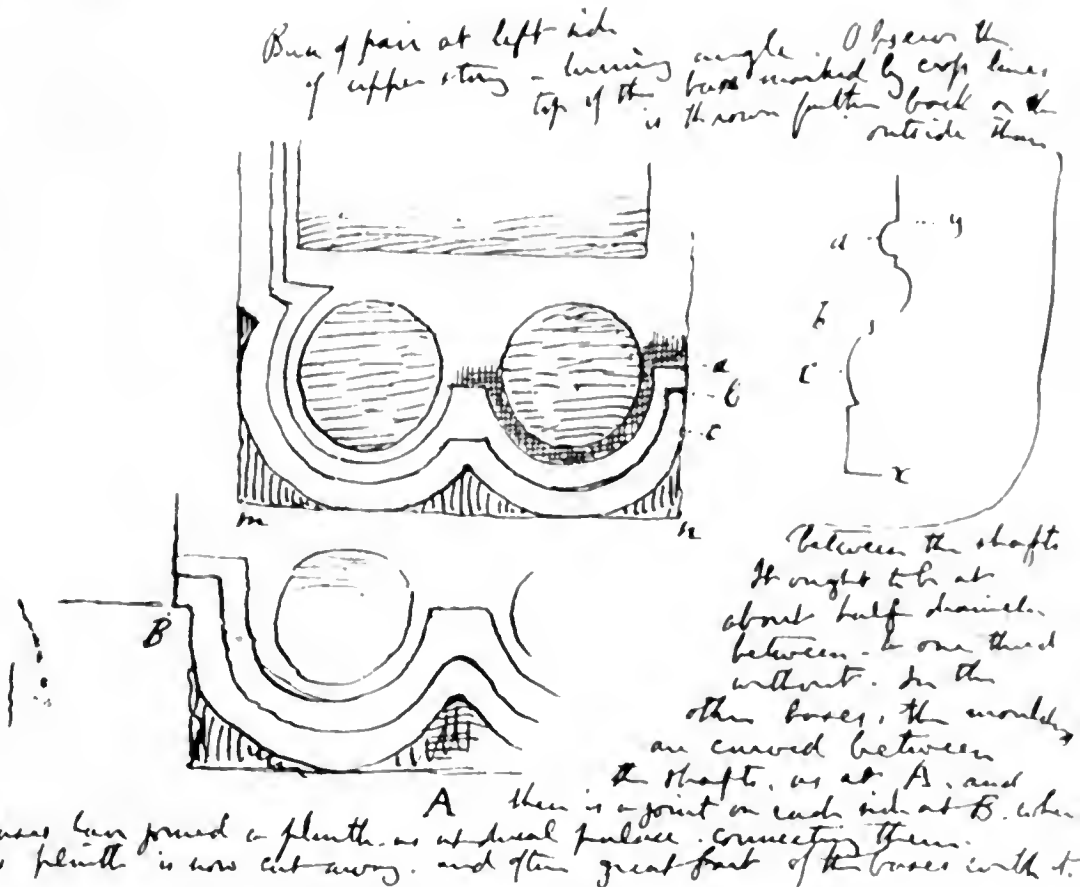 Base of pair at left side
of upper story - turning angle. Observe the
top of the base marked by cross lines
is thrown further back on the
outside than
d y
b
c
x
a
b
c
m n
between the shafts
It ought to be at
about half diameter
between - & one third
without. In the
other bases, the mouldgs
are curved between
the shafts, as at A, and
B
A there is a joint on each side at B. where
bases have joined a plinth, as at ducal palace. connecting them.
plinth is now cut away. and often great part of the bases with it.